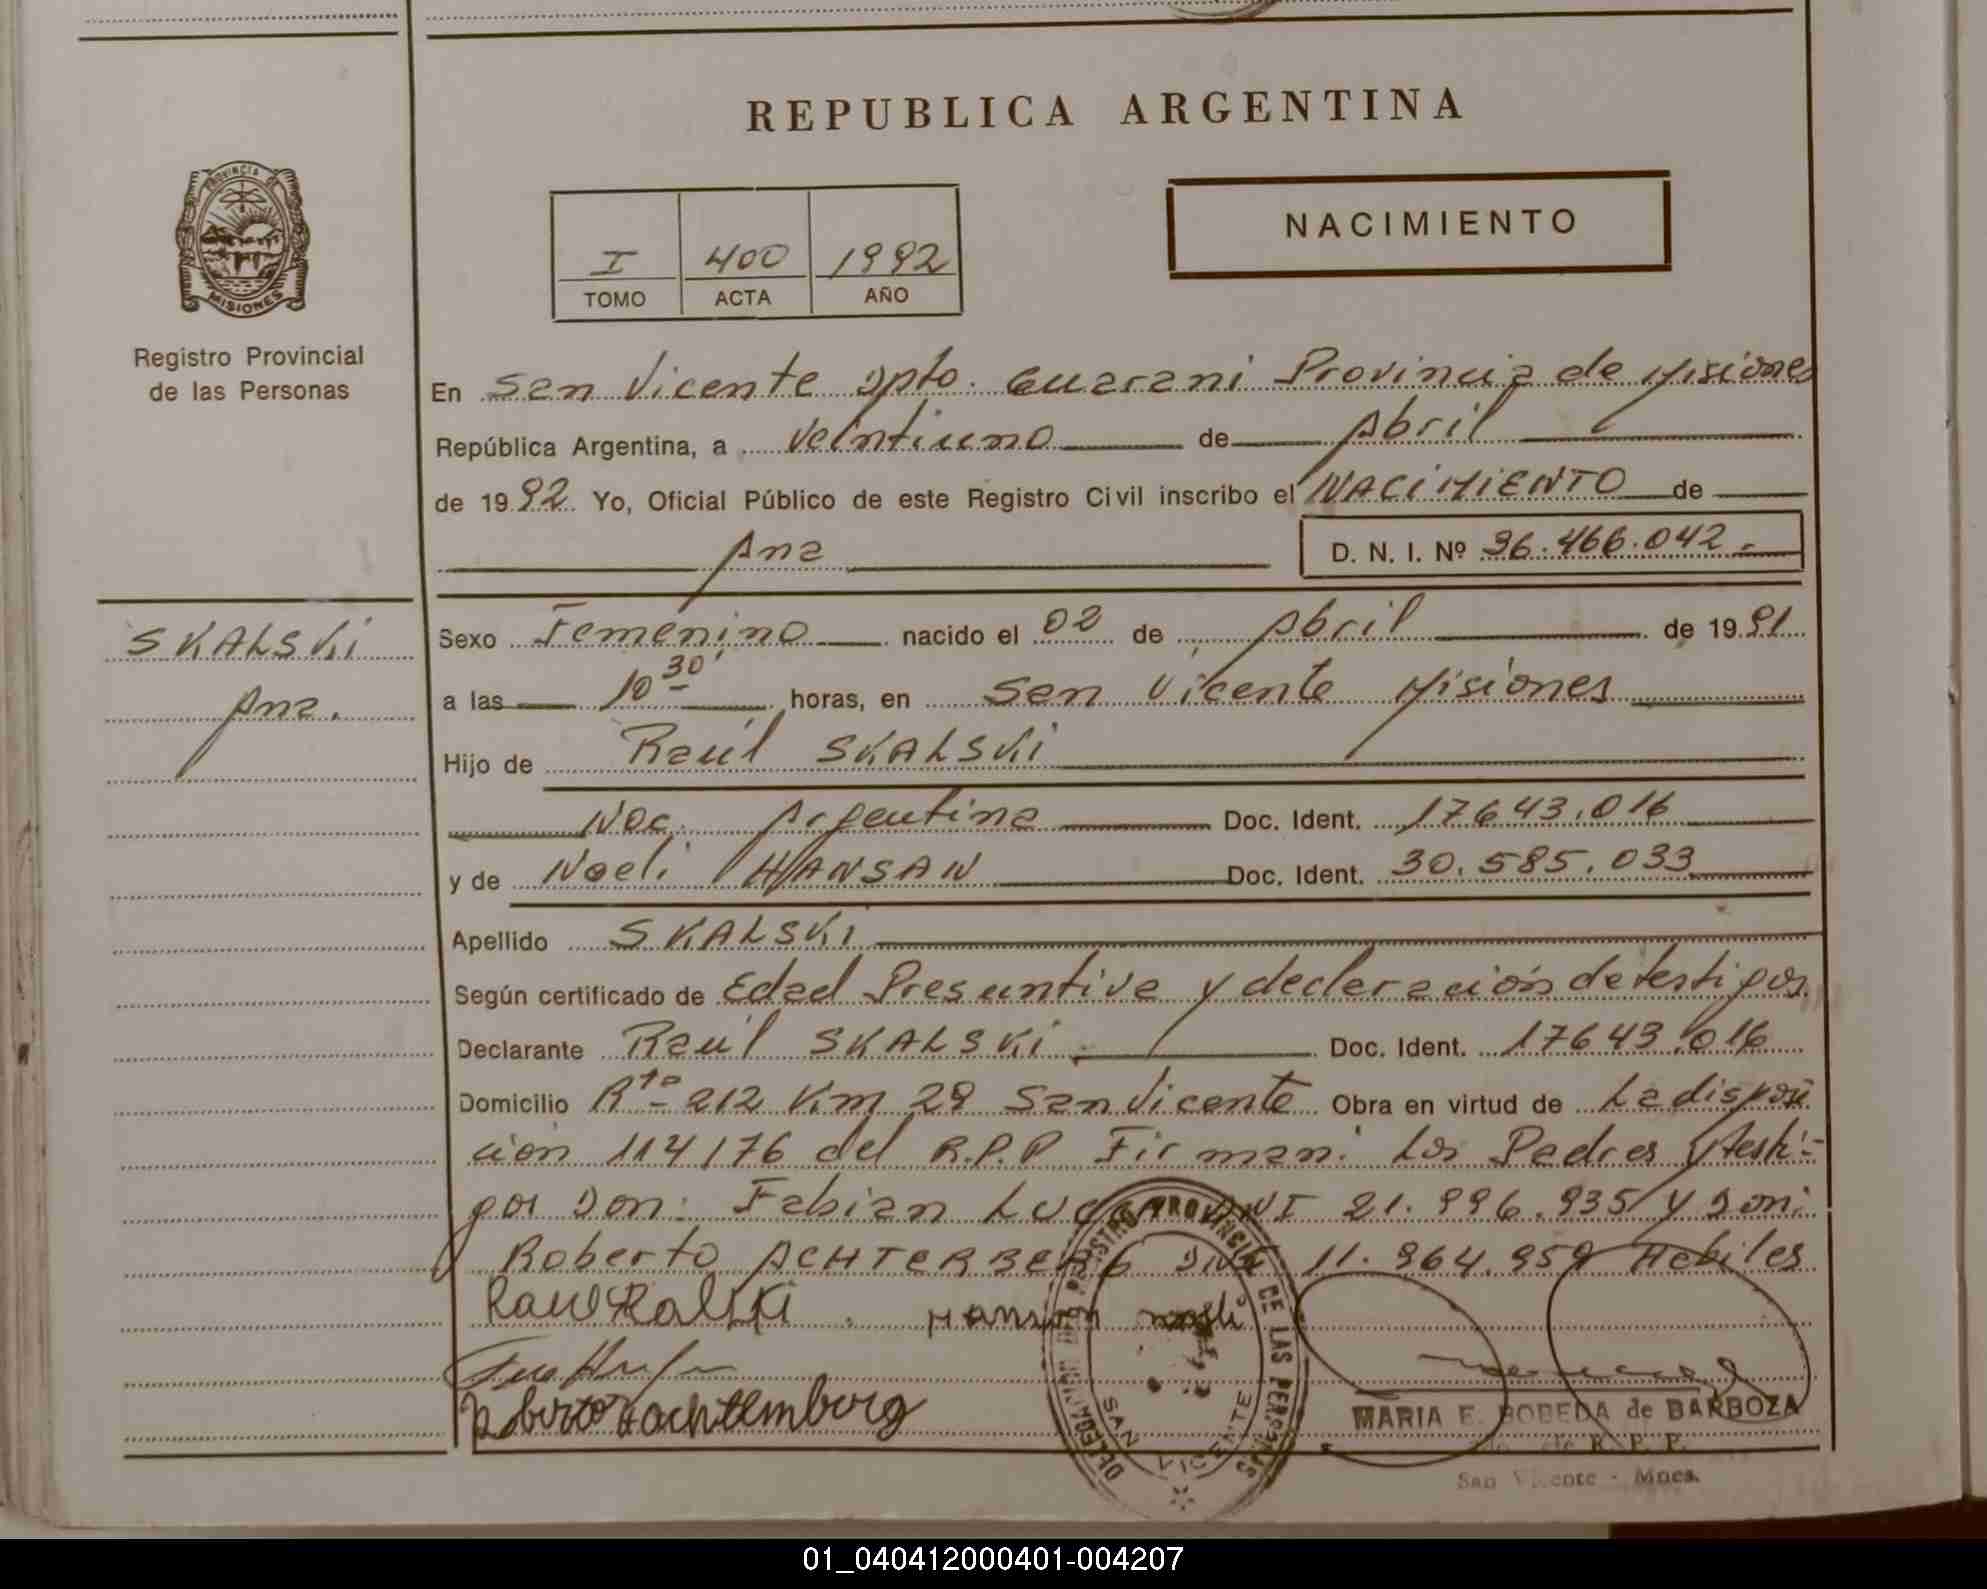 REPUBLICA ARGENTINA
PROVINCIA DE
MISIONES
Registro Provincial
de las Personas
I 400 1992
TOMO ACTA AÑO
NACIMIENTO
En San Vicente Dpto. Guarani Provincia de Misiones
República Argentina, a Veintiuno de Abril
de 1992. Yo, Oficial Público de este Registro Civil inscribo el NACIMIENTO de
Ana D. N. I. Nº 36.466.042.-
SKALSKi
Ana.
Sexo Femenino nacido el 02 de Abril de 1991
a las 10 30' horas, en San Vicente Misiones
Hijo de Raúl SKALSKi
Nac. Argentina Doc. Ident. 17643.016
y de Noeli HANSAN Doc. Ident. 30.585.033
Apellido SKALSKi
Según certificado de Edad Presuntiva y declaración de testigos.
Declarante Raúl SKALSKi Doc. Ident. 17643.016
Domicilio Rta 212 Km 29 San Vicente Obra en virtud de La disposi
ción 114/76 del R.P.P Firman: Los Padres y testi-
gos Don: Fabian DNI 21.996.935 y Don:
Roberto ACHTERBERG DNI 11.964.959 Habiles
Hansan Noeli
Roberto
REGISTRO PROVINCIAL DE LAS PERSONAS
SAN VICENTE
MARIA E. BOBEDA de BARBOZA
R. P. P.
San Vicente - Mnes.
01_040412000401-004207